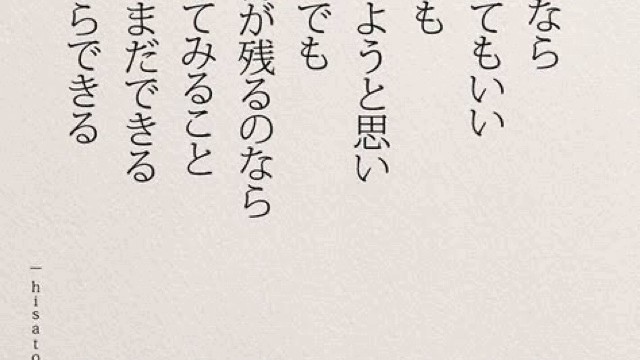 なら
てもいい
も
ようと思い
でも
が残るのなら
てみること
まだできる
らできる
—hisato